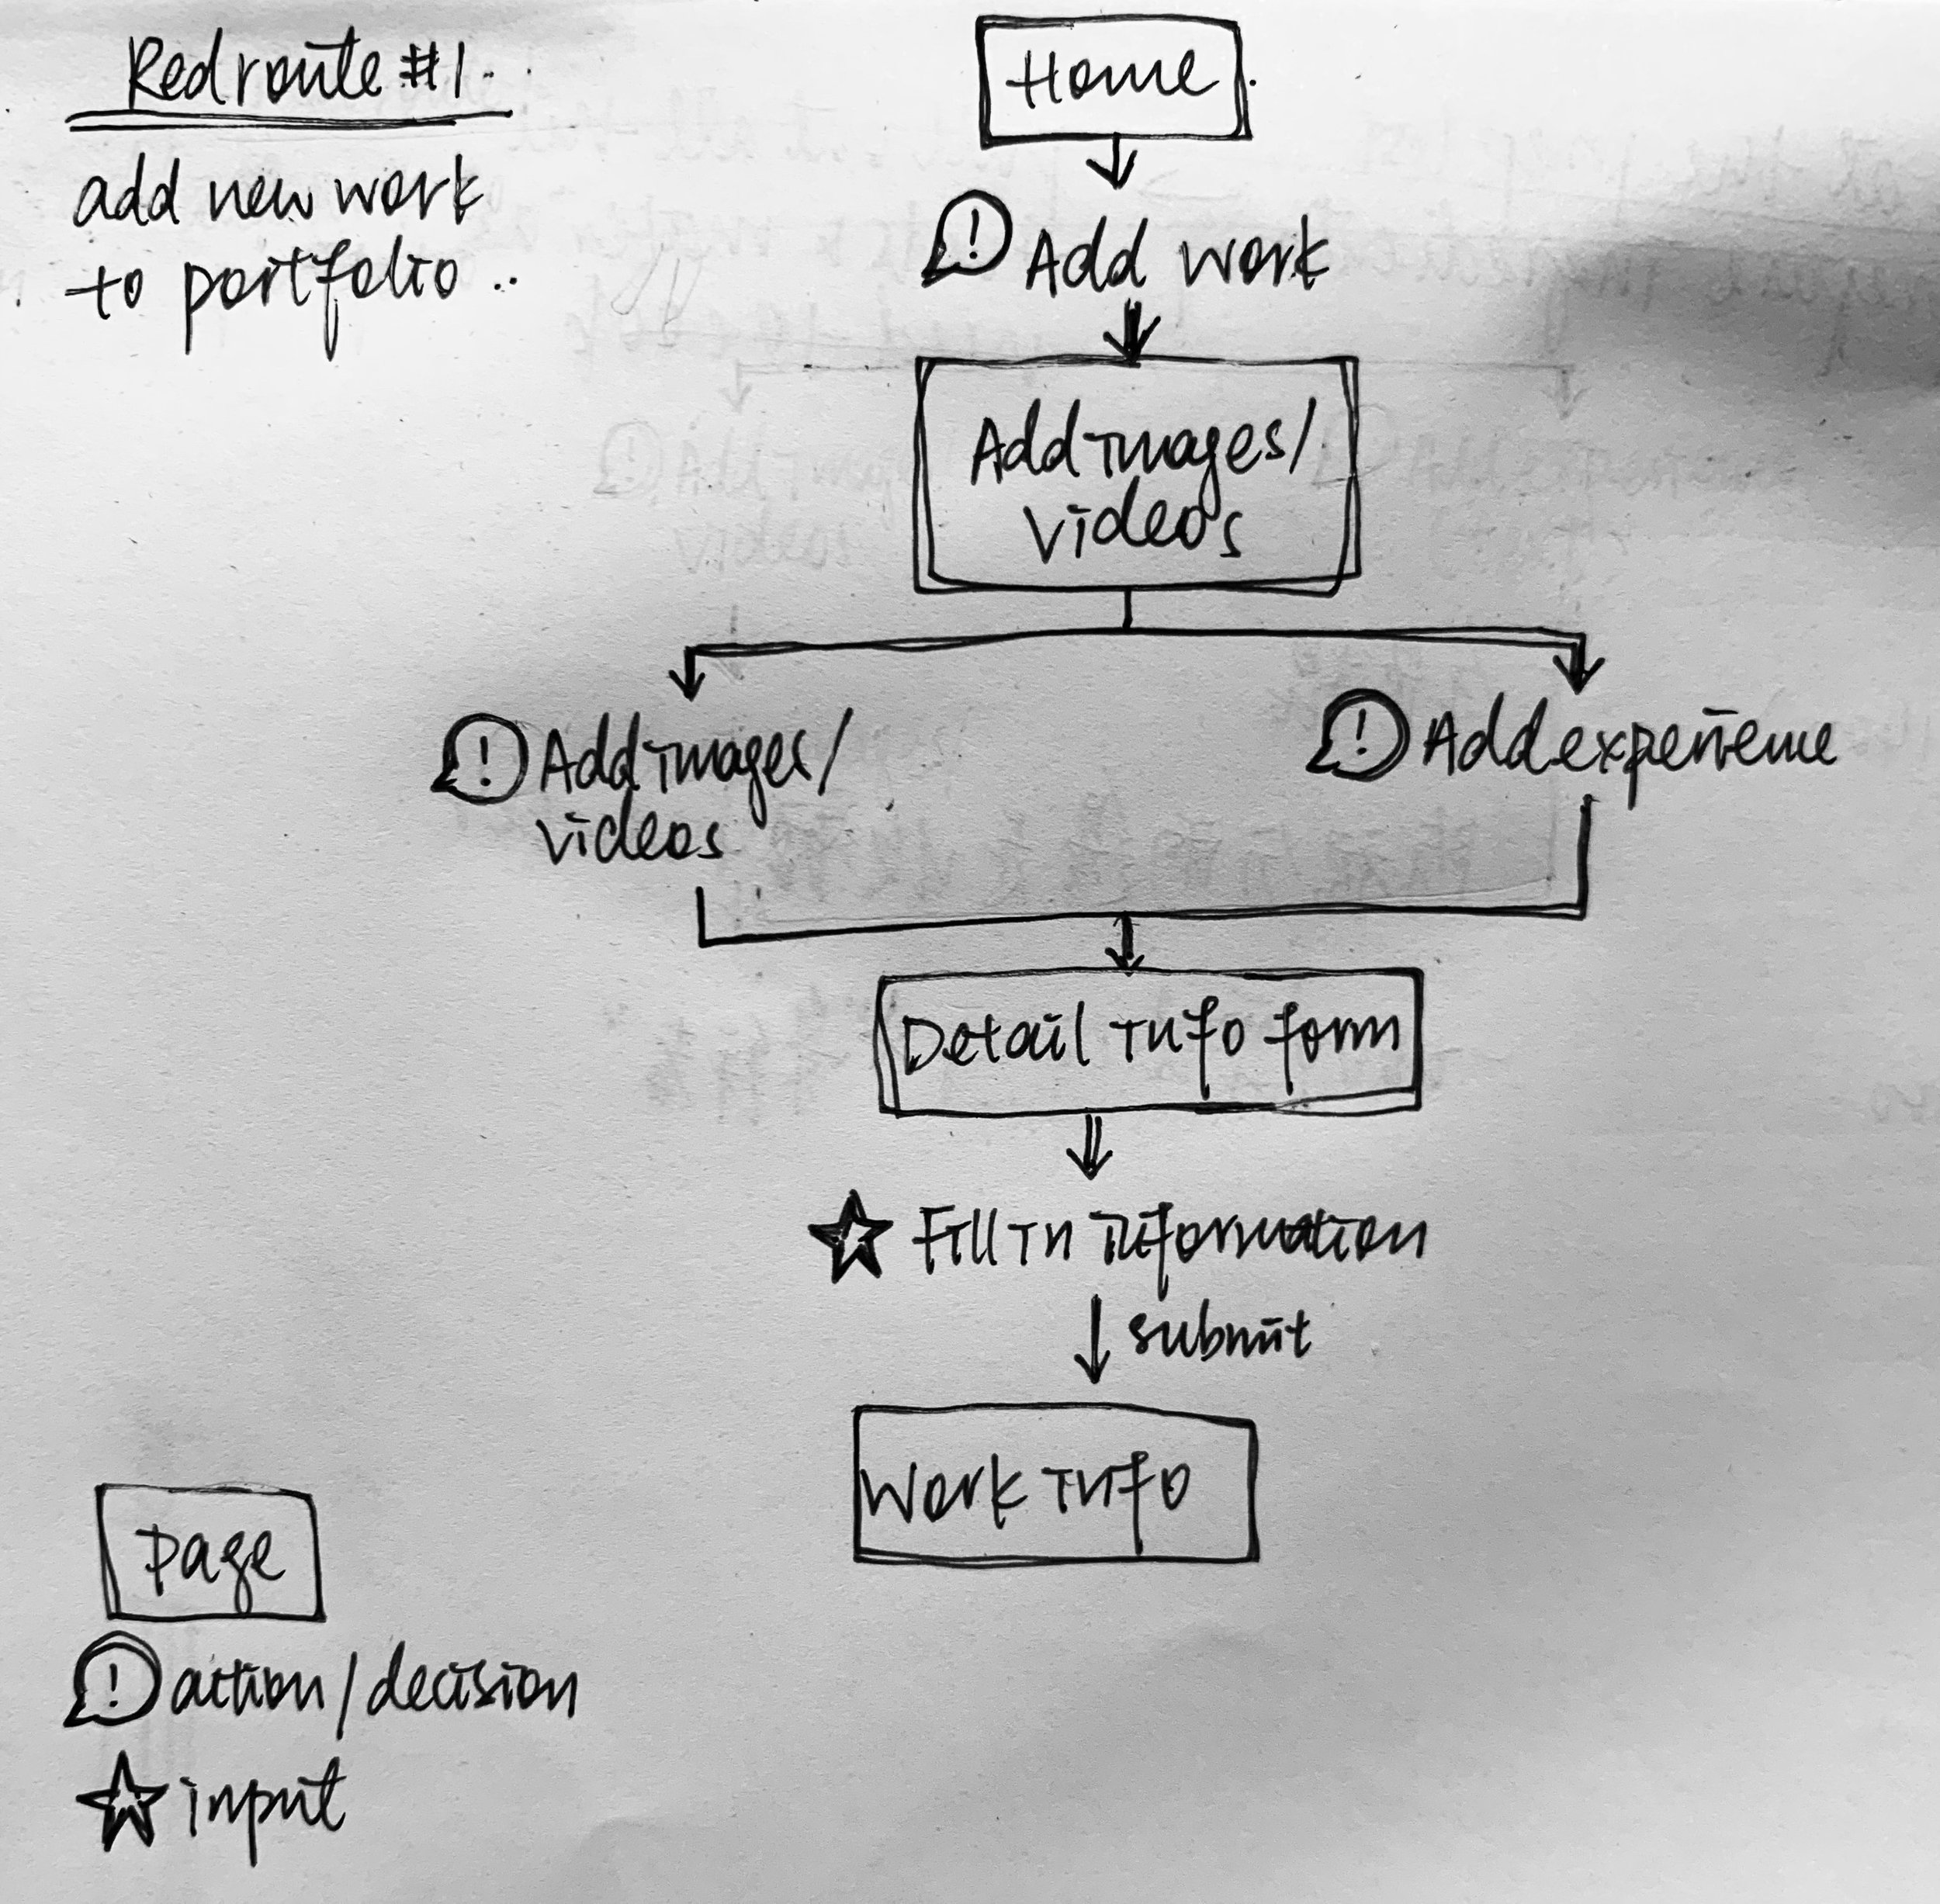 Red route #1.
add new work
to portfolio..
Home
! Add work
Add images/
videos
! Add images/
videos
! Add experience
Detail info form
Fill in information
submit
Work info
Page
! action/decision
input